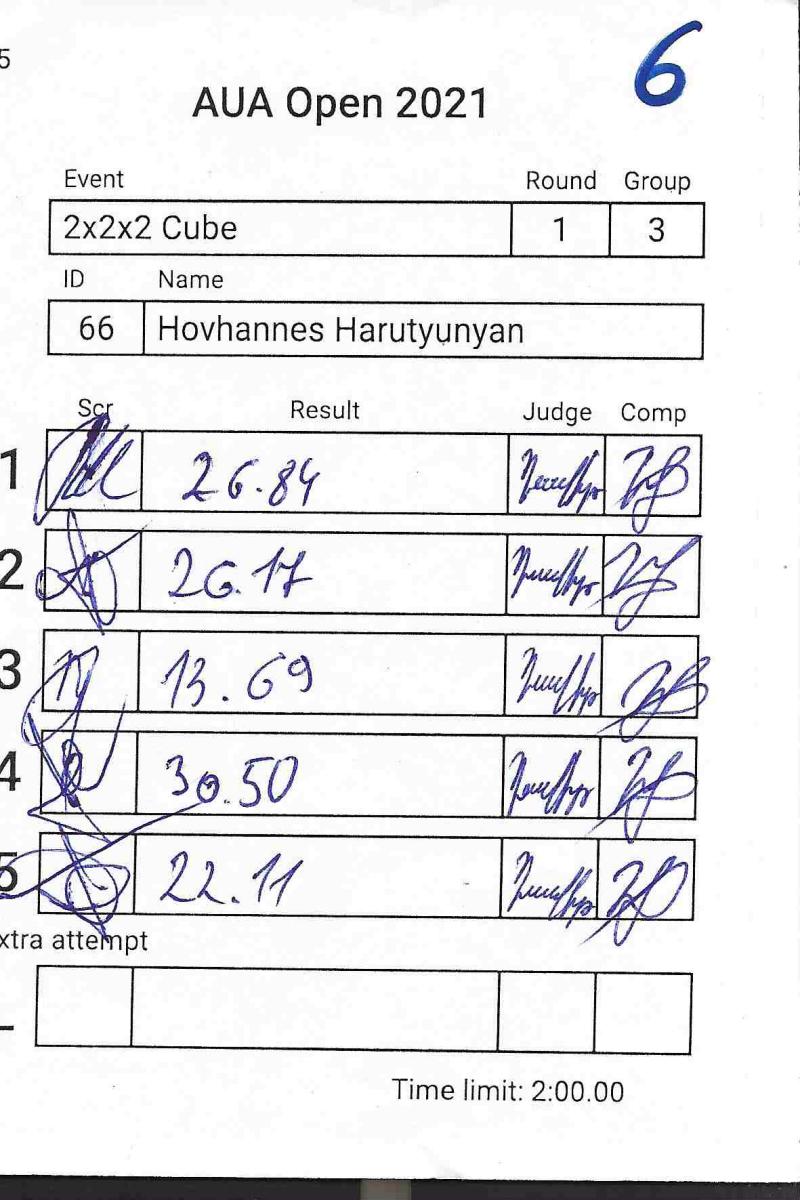 5
6
AUA Open 2021
Event Round Group
2x2x2 Cube 1 3
ID Name
66 Hovhannes Harutyunyan
Scr Result Judge Comp
1 26.84
2 26.17
3 13.69
4 30.50
5 22.11
xtra attempt
Time limit: 2:00.00